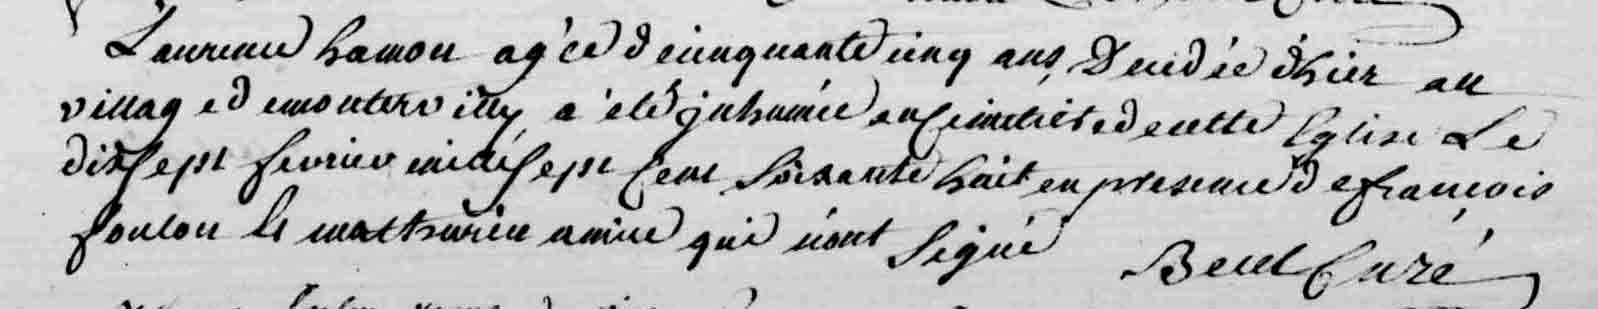 Laurence hamon agée de cinquante cinq ans, Decedée d'hier au
village de montervilly a été juhumée au Cimetiere de cette Eglise Le
dix Sept fevrier mille Sept Cent Soixante huit en presence de françois
foulon & mathurin qui n'ont Signé
Curé